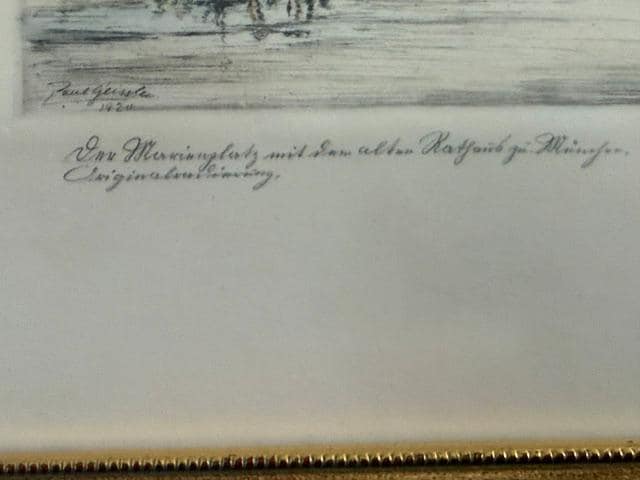 Paul Geissler
1920
Der Marienplatz mit dem alten Rathaus zu München.
Originalradierung.